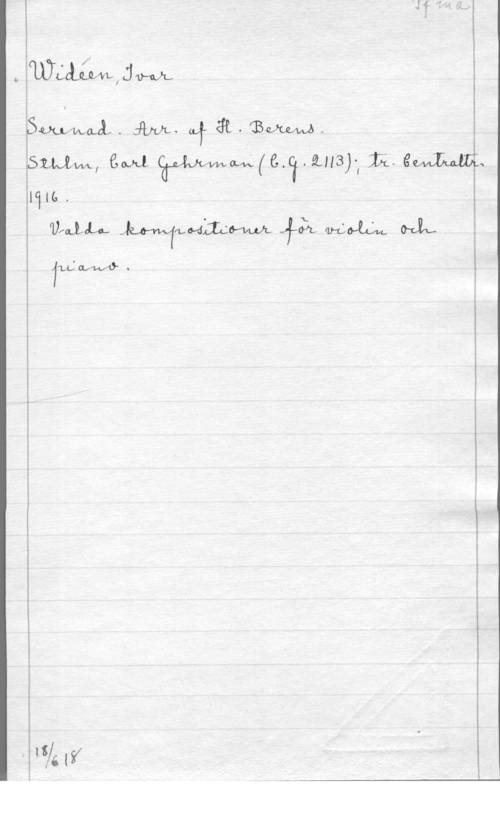 Sf ma
Widéen, Ivar
Serenad. Arr. af H. Berens.
Sthlm, Carl Gehrman (C.G. 2113); tr. Centraltr.
1916.
Valda kompositioner för violin och
piano.
18/6 18